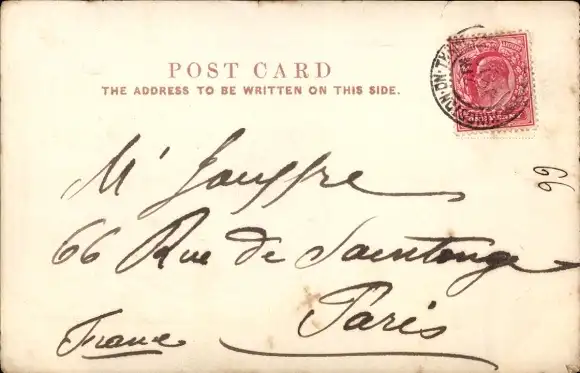 POST CARD
THE ADDRESS TO BE WRITTEN ON THIS SIDE.
Mr Jouffre
66 Rue de Saintonge
Paris
France
99